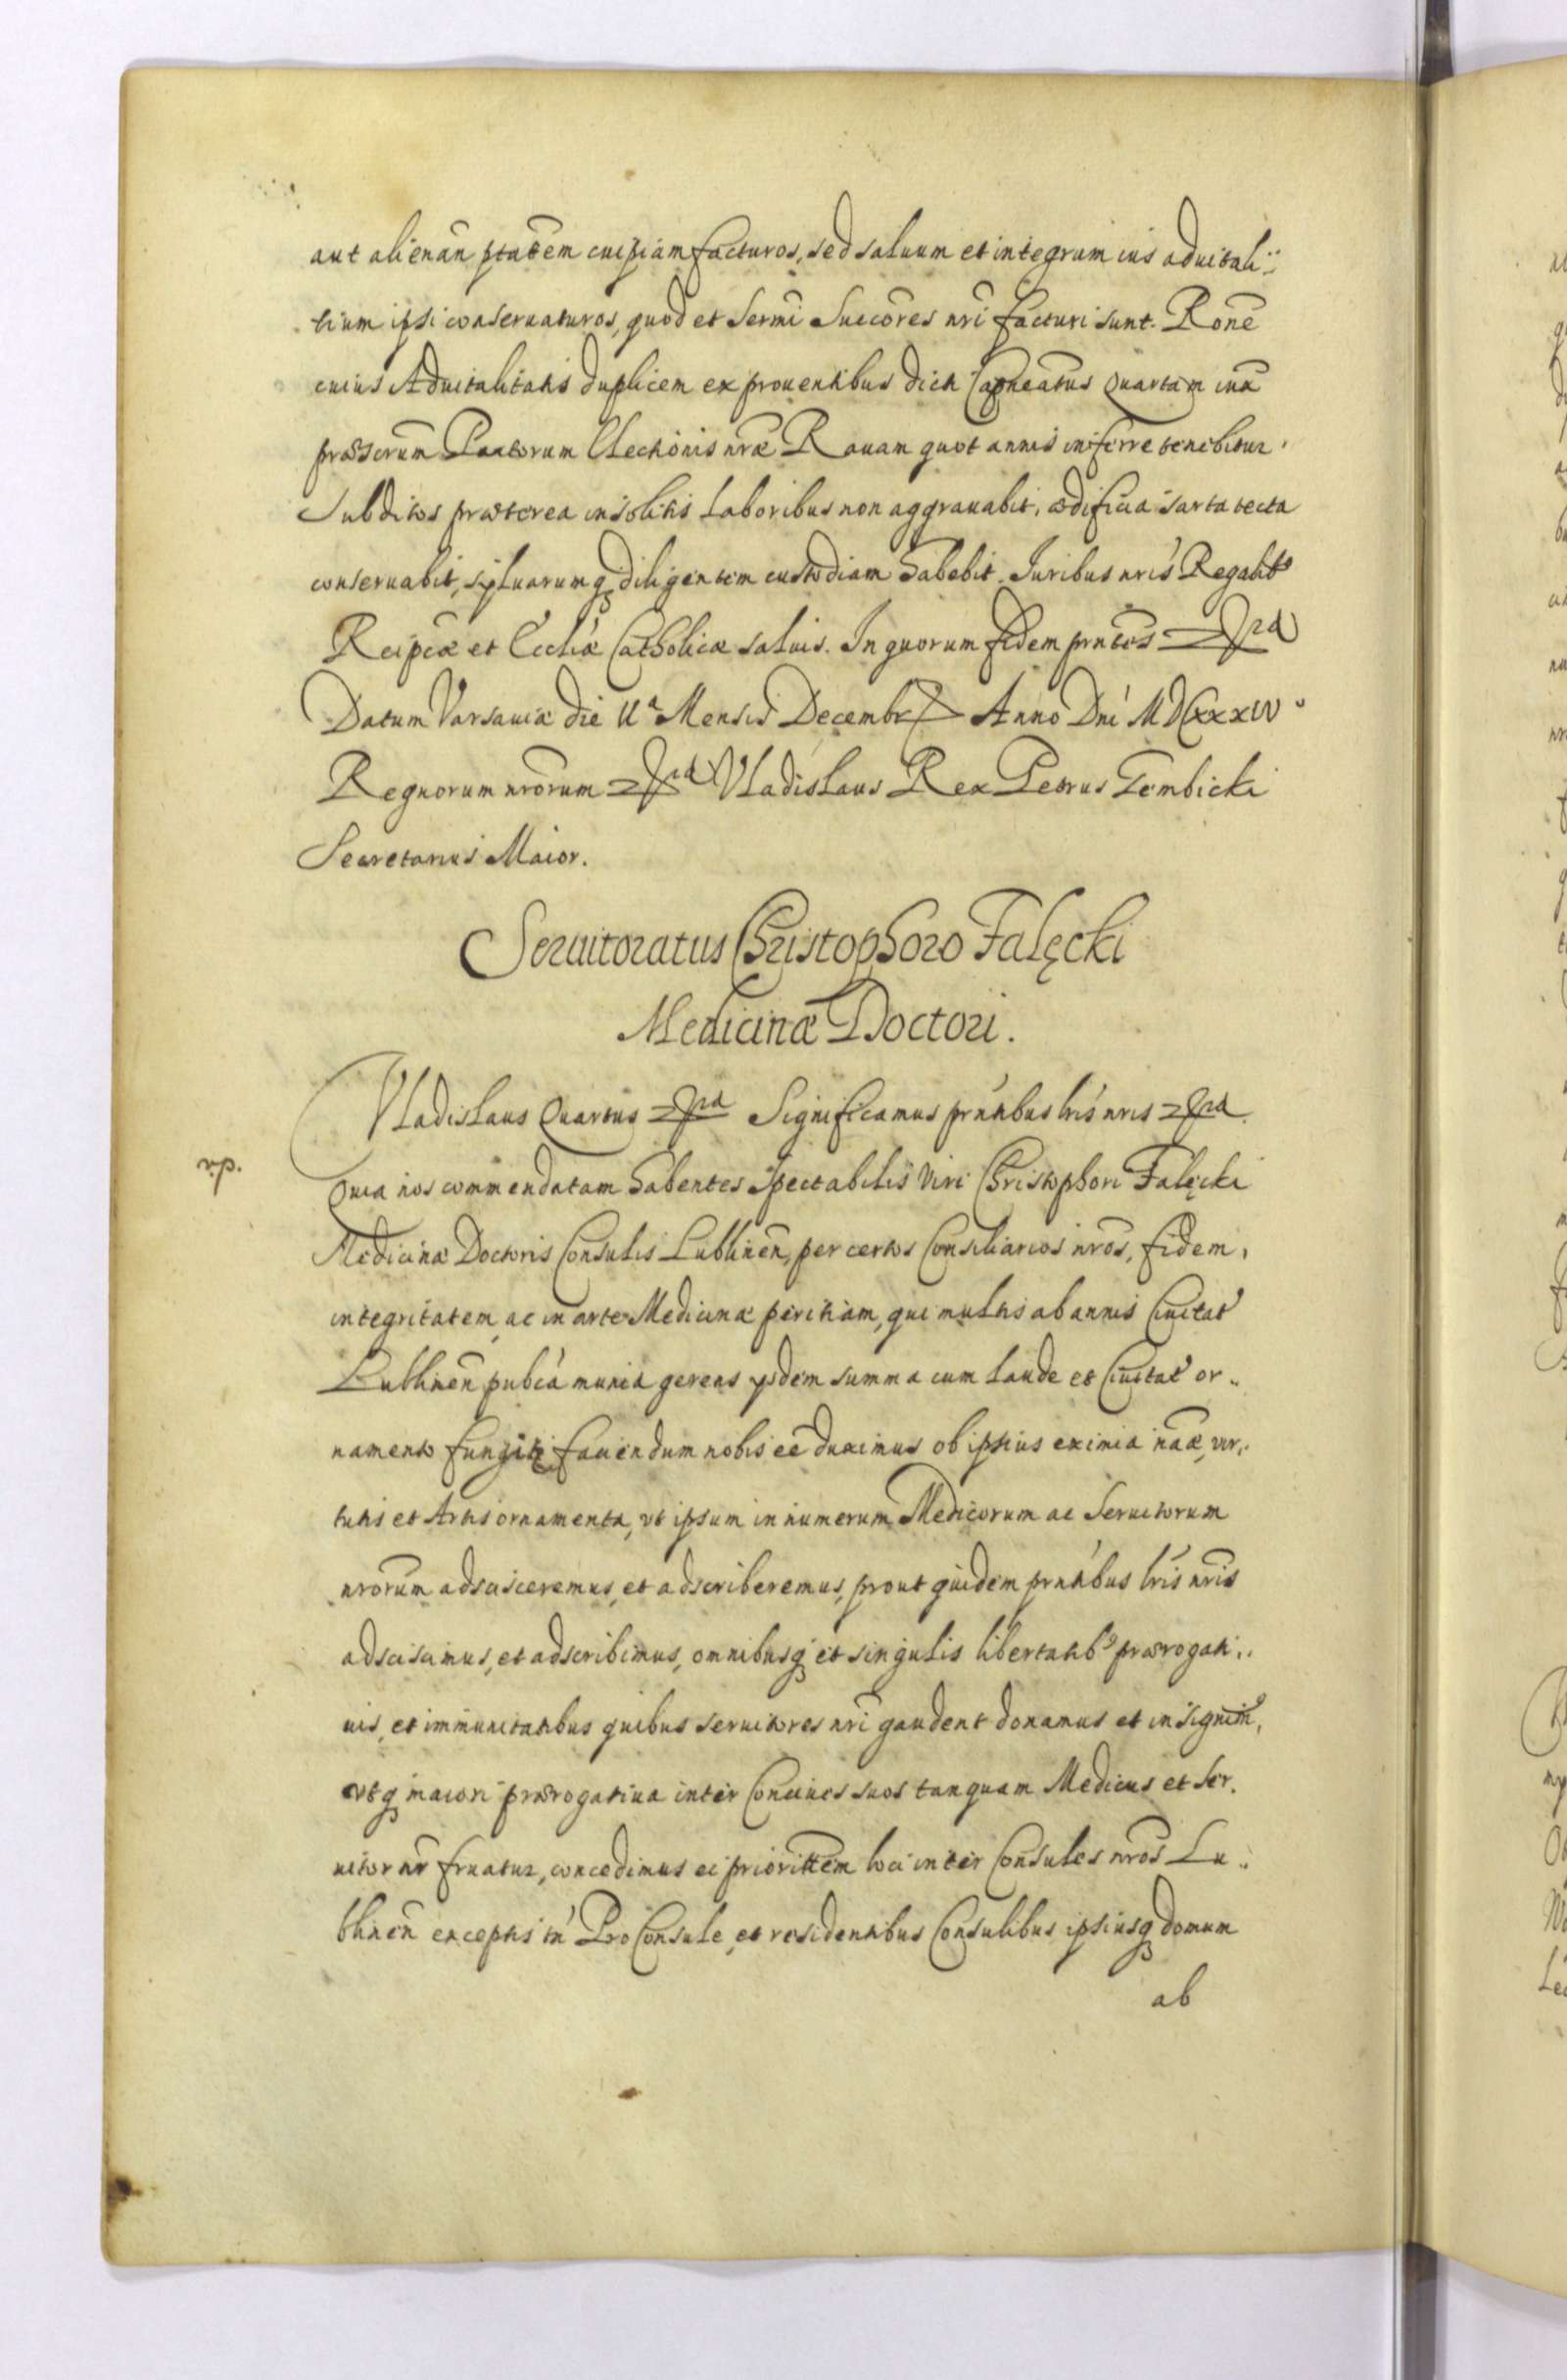 aut alienan̄ ptatem cuipiam facturos, sed saluum et integrum ius aduitali:
tium ipsi conseruaturos, quod et Sermi Succores nri facturi sunt. Rone
cuius Aduitalitatis duplicem ex prouentibus dicti Capneatus Quartam iuxa
præscrum Pactorum Electionis nræ Rauam quot annis inferre tenebitur.
Subditos præterea insolitis Laboribus non aggrauabit, ædificia sarta tecta
conseruabit, syluarumq diligentem custodiam habebit. Iuribus nris Regalibs
Reipcæ et Eccliæ Catholicæ saluis. In quorum fidem pntes
Datum Varsauiæ die Mensis Decembr Anno Dni MDCXXXIV
Regnorum nrorum Vladislaus Rex Petrus Gembicki
Secretarius Maior.
Seruitoratus Christophoro Falęcki
Medicinæ Doctori.
Vladislaus Quartus Significamus pntibus lris nris
Quia nos commendatam habentes Spectabilis Viri Christophori Falęcki
Medicinæ Doctoris Consulis Lublinen, per certos Consiliarios nros, fidem,
integritatem, ac in arte Medicinæ peritiam, qui multis ab annis Ciuitat
Lublinen pubca munia gerens ysdem summa cum Laude et Ciuitat or..
namento fungitr fauendum nobis eē duximus ob ipsius eximia naæ, vir..
tutis et Artis ornamenta, vt ipsum in numerum Medicorum ac Seruitorum
nrorum adscisceremus, et adscriberemus, prout quidem pntibus lris nris
adsciscimus, et adscribimus, omnibusq et singulis libertatibs prærogati..
uis, et immunitatibus quibus seruitores nri gaudent donamus et insignim,
vtq maiori prærogatiua inter Conciues suos tanquam Medicus et Ser.
uitor nr fruatur, concedimus ei priorittem loci inter Consules nros Lu..
blinen exceptis tn Pro Consule, et residentibus Consulibus ipsiusq domum
ab